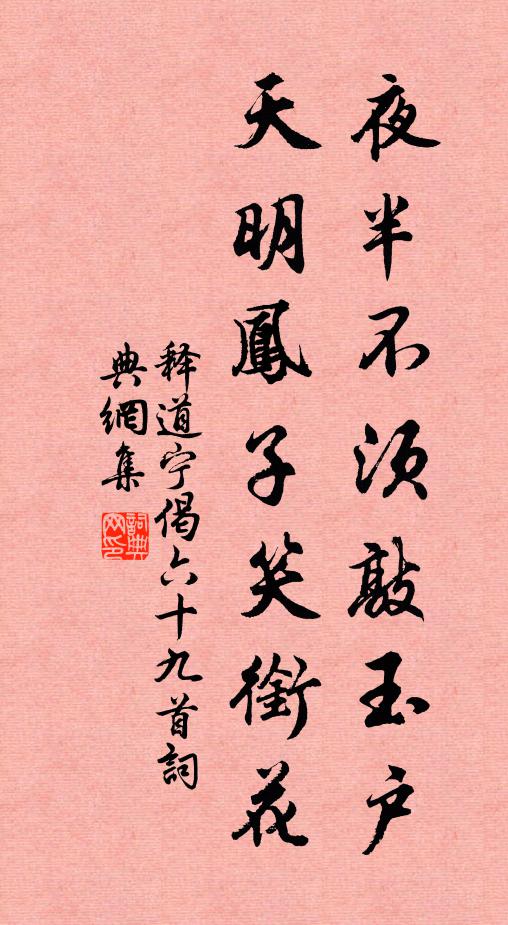 夜半不须敲玉户
天明鳳子笑銜花
释道宁偈六十九首詞
典網集
詞典网印